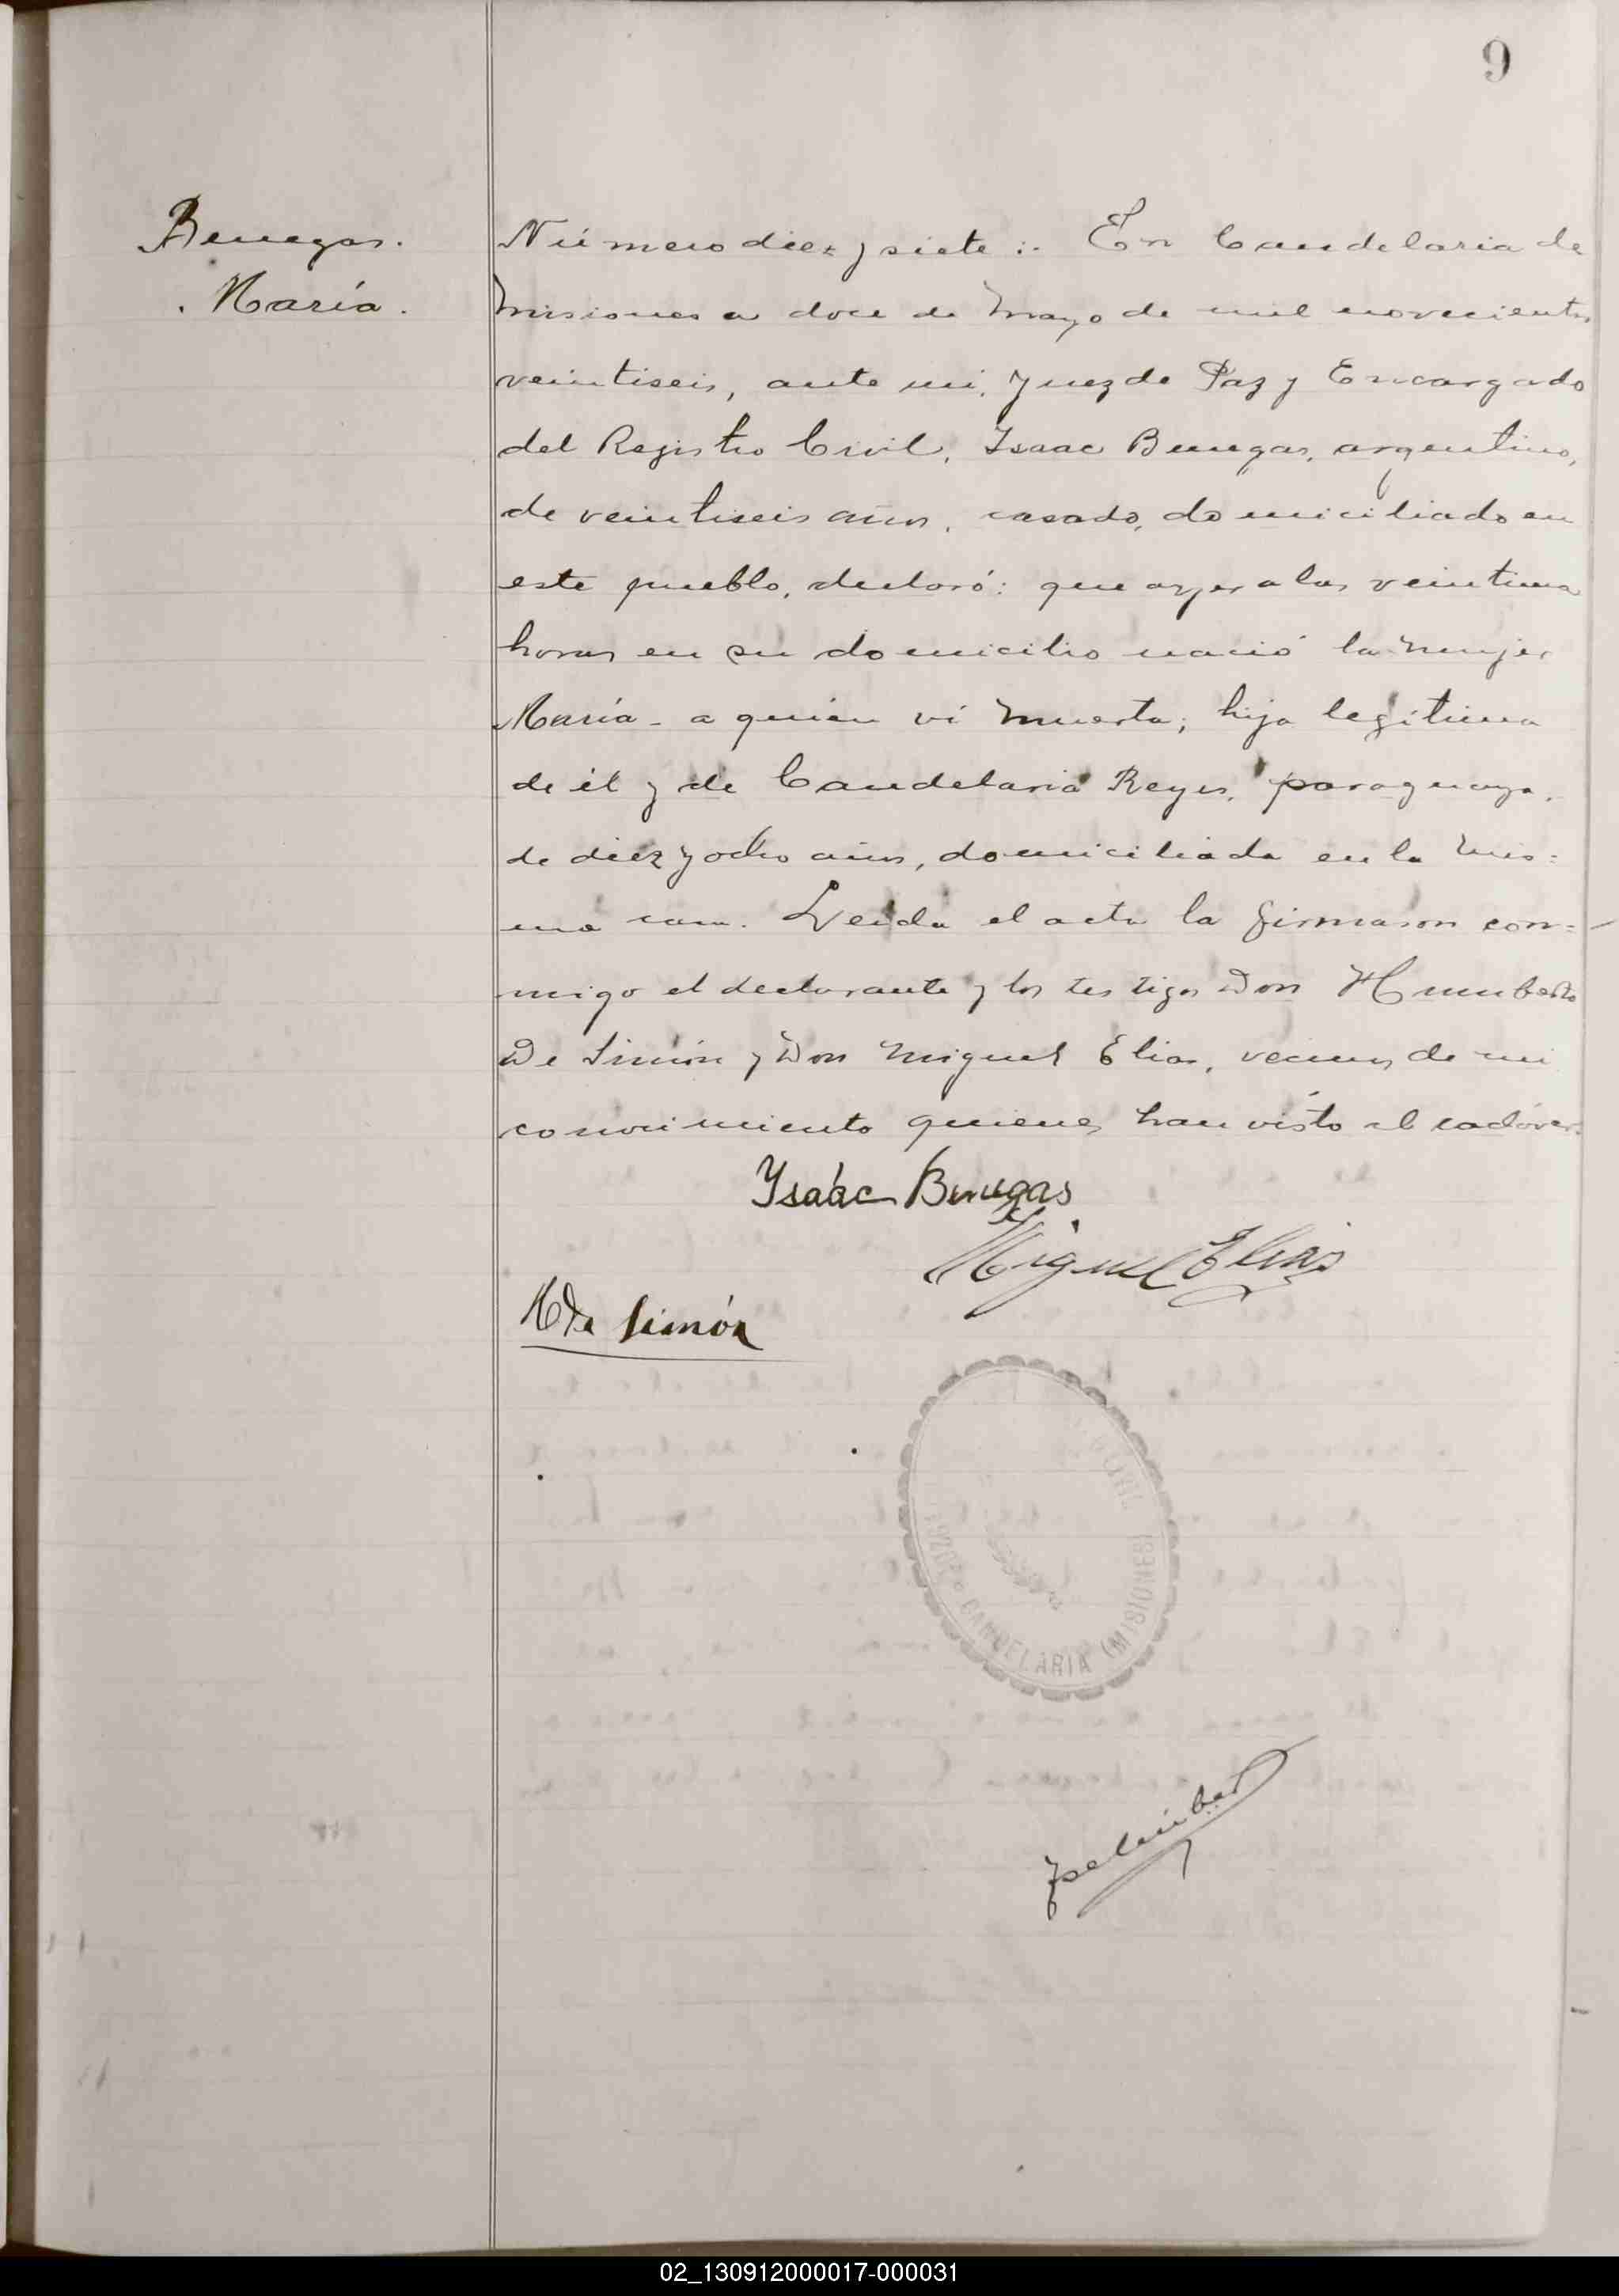 9
Benegas.
María.
Número diez y siete:. En Candelaria de
Misiones a doce de Mayo de mil novecientos
veintiseis, ante mi, Juez de Paz y Encargado
del Registro Civil, Isaac Benegas, argentino,
de veintiseis años, casado, domiciliado en
este pueblo, declaró: que ayer a las veintiuna
horas en su domicilio nació la mujer
María - a quien ví muerta; hija legítima
de él y de Candelaria Reyes, paraguaya,
de diez y ocho años, domiciliada en la mis=
ma casa. Leída el acta la firmaron con=
migo el declarante y los testigos Don Humberto
De Simón y Don Miguel Elias, vecinos de mi
conocimiento quienes han visto el cadáver.
Ysaác Benegas
Miguel Elias
H De Simón
CANDELARIA (MISIONES)
02_130912000017-000031